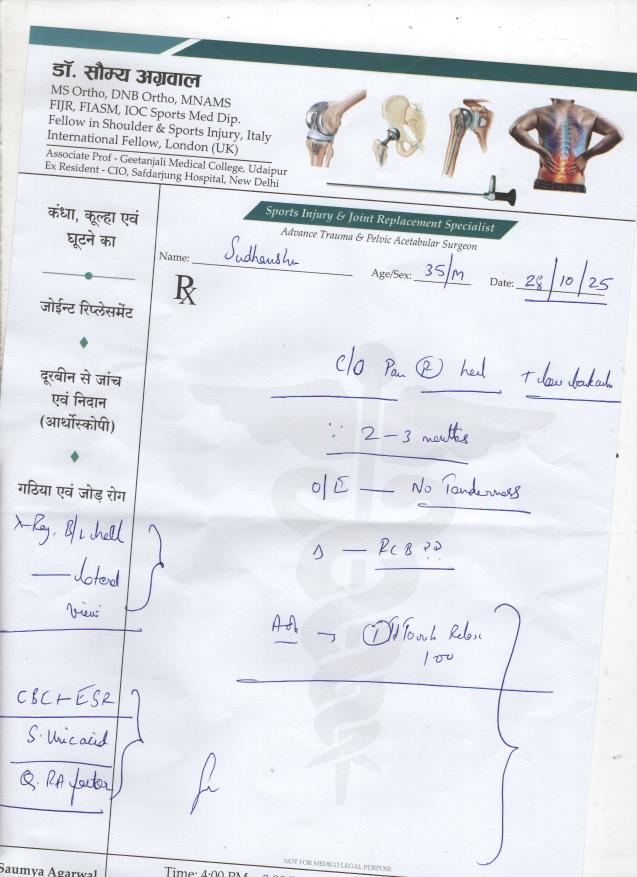 डॉ. सौम्य अग्रवाल
MS Ortho, DNB Ortho, MNAMS
FIJR, FIASM, IOC Sports Med Dip.
Fellow in Shoulder & Sports Injury, Italy
International Fellow, London (UK)
Associate Prof - Geetanjali Medical College, Udaipur
Ex Resident - CIO, Safdarjung Hospital, New Delhi
Sports Injury & Joint Replacement Specialist
Advance Trauma & Pelvic Acetabular Surgeon
Name: Sudhanshu Age/Sex: 35/M Date: 28/10/25
℞
कंधा, कूल्हा एवं
घूटने का
जोईन्ट रिप्लेसमेंट
दूरबीन से जांच
एवं निदान
(आर्थोस्कोपी)
गठिया एवं जोड़ रोग
X-Ray. B/L heel
— lateral
view
CBC + ESR
S. Uric acid
Q. RA factor
C/O Pain (R) heel +
∵ 2 – 3 months
O/E — No Tenderness
RCB ??
100
NOT FOR MEDICO LEGAL PURPOSE
Saumya Agarwal
Time: 4:00 PM